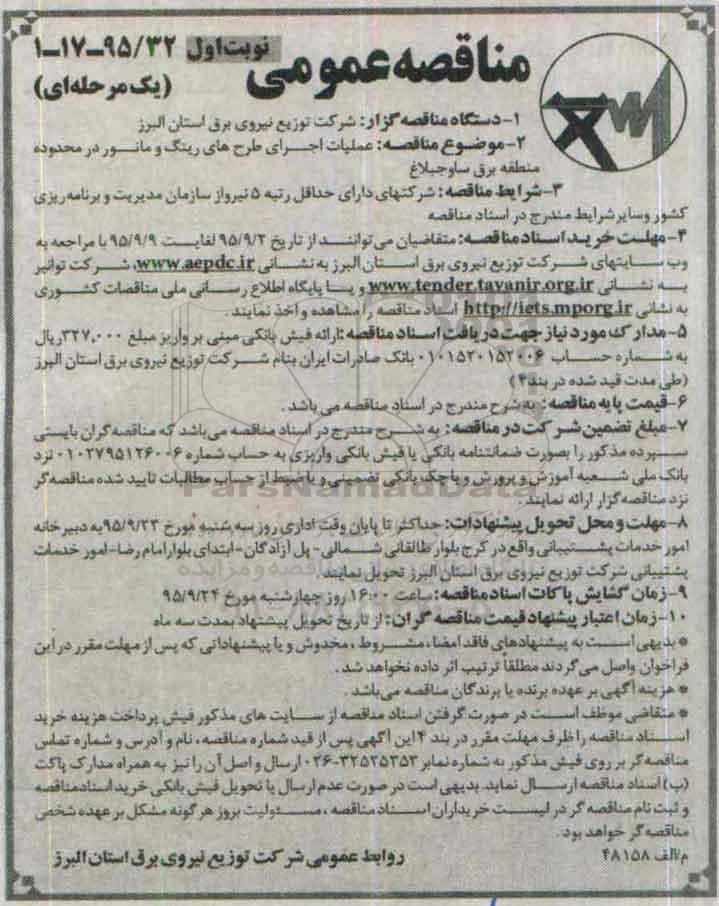 مناقصه عمومی
نوبت اول ۹۵/۳۲-۱۷-۱
(یک مرحله‌ای)
۱-دستگاه مناقصه گزار: شرکت توزیع نیروی برق استان البرز
۲-موضوع مناقصه: عملیات اجرای طرح های رینگ و مانور در محدوده
منطقه برق ساوجبلاغ
۳-شرایط مناقصه: شرکتهای دارای حداقل رتبه ۵ نیرو از سازمان مدیریت و برنامه ریزی
کشور وسایر شرایط مندرج در اسناد مناقصه
۴-مهلت خرید اسناد مناقصه: متقاضیان می توانند از تاریخ ۹۵/۹/۲ لغایت ۹۵/۹/۹ با مراجعه به
وب سایتهای شرکت توزیع نیروی برق استان البرز به نشانی www.aepdc.ir، شرکت توانیر
به نشانی www.tender.tavanir.org.ir و یا پایگاه اطلاع رسانی ملی مناقصات کشوری
به نشانی http://iets.mporg.ir اسناد مناقصه را مشاهده و اخذ نمایند.
۵-مدارک مورد نیاز جهت دریافت اسناد مناقصه: ارائه فیش بانکی مبنی بر واریز مبلغ ۳۲۷,۰۰۰ ریال
به شماره حساب ۰۱۰۱۵۲۰۱۵۲۰۰۶ بانک صادرات ایران بنام شرکت توزیع نیروی برق استان البرز
(طی مدت قید شده در بند۴)
۶-قیمت پایه مناقصه: به شرح مندرج در اسناد مناقصه می باشد.
۷-مبلغ تضمین شرکت در مناقصه: به شرح مندرج در اسناد مناقصه می باشد که مناقصه گران بایستی
سپرده مذکور را بصورت ضمانتنامه بانکی یا فیش بانکی واریزی به حساب شماره ۰۱۰۲۷۹۵۱۲۶۰۰۶ نزد
بانک ملی شعبه آموزش و پرورش و یا چک بانکی تضمینی و یا ضبط از حساب مطالبات تایید شده مناقصه گر
نزد مناقصه گزار ارائه نمایند.
۸-مهلت و محل تحویل پیشنهادات: حداکثر تا پایان وقت اداری روز سه شنبه مورخ ۹۵/۹/۲۳ به دبیرخانه
امور خدمات پشتیبانی واقع در کرج بلوار طالقانی شمالی- پل آزادگان-ابتدای بلوار امام رضا-امور خدمات
پشتیبانی شرکت توزیع نیروی برق استان البرز تحویل نمایند.
۹-زمان گشایش پاکات اسناد مناقصه: ساعت ۱۶:۰۰ روز چهارشنبه مورخ ۹۵/۹/۲۴
۱۰-زمان اعتبار پیشنهاد قیمت مناقصه گران: از تاریخ تحویل پیشنهاد بمدت سه ماه
* بدیهی است به پیشنهادهای فاقد امضا، مشروط، مخدوش و یا پیشنهاداتی که پس از مهلت مقرر در این
فراخوان واصل می گردند مطلقاً ترتیب اثر داده نخواهد شد.
* هزینه آگهی بر عهده برنده یا برندگان مناقصه می‌باشد.
* متقاضی موظف است در صورت گرفتن اسناد مناقصه از سایت های مذکور فیش پرداخت هزینه خرید
اسناد مناقصه را ظرف مهلت مقرر در بند ۴ این آگهی پس از قید شماره مناقصه، نام و آدرس و شماره تماس
مناقصه گر بر روی فیش مذکور به شماره نمابر ۳۲۵۲۵۳۵۳-۰۲۶ ارسال و اصل آن را نیز به همراه مدارک پاکت
(ب) اسناد مناقصه ارسال نماید. بدیهی است در صورت عدم ارسال یا تحویل فیش بانکی خرید اسناد مناقصه
و ثبت نام مناقصه گر در لیست خریداران اسناد مناقصه، مسئولیت بروز هرگونه مشکل بر عهده شخص
مناقصه گر خواهد بود.
م/الف ۴۸۱۵۸
روابط عمومی شرکت توزیع نیروی برق استان البرز
ParsNamadData